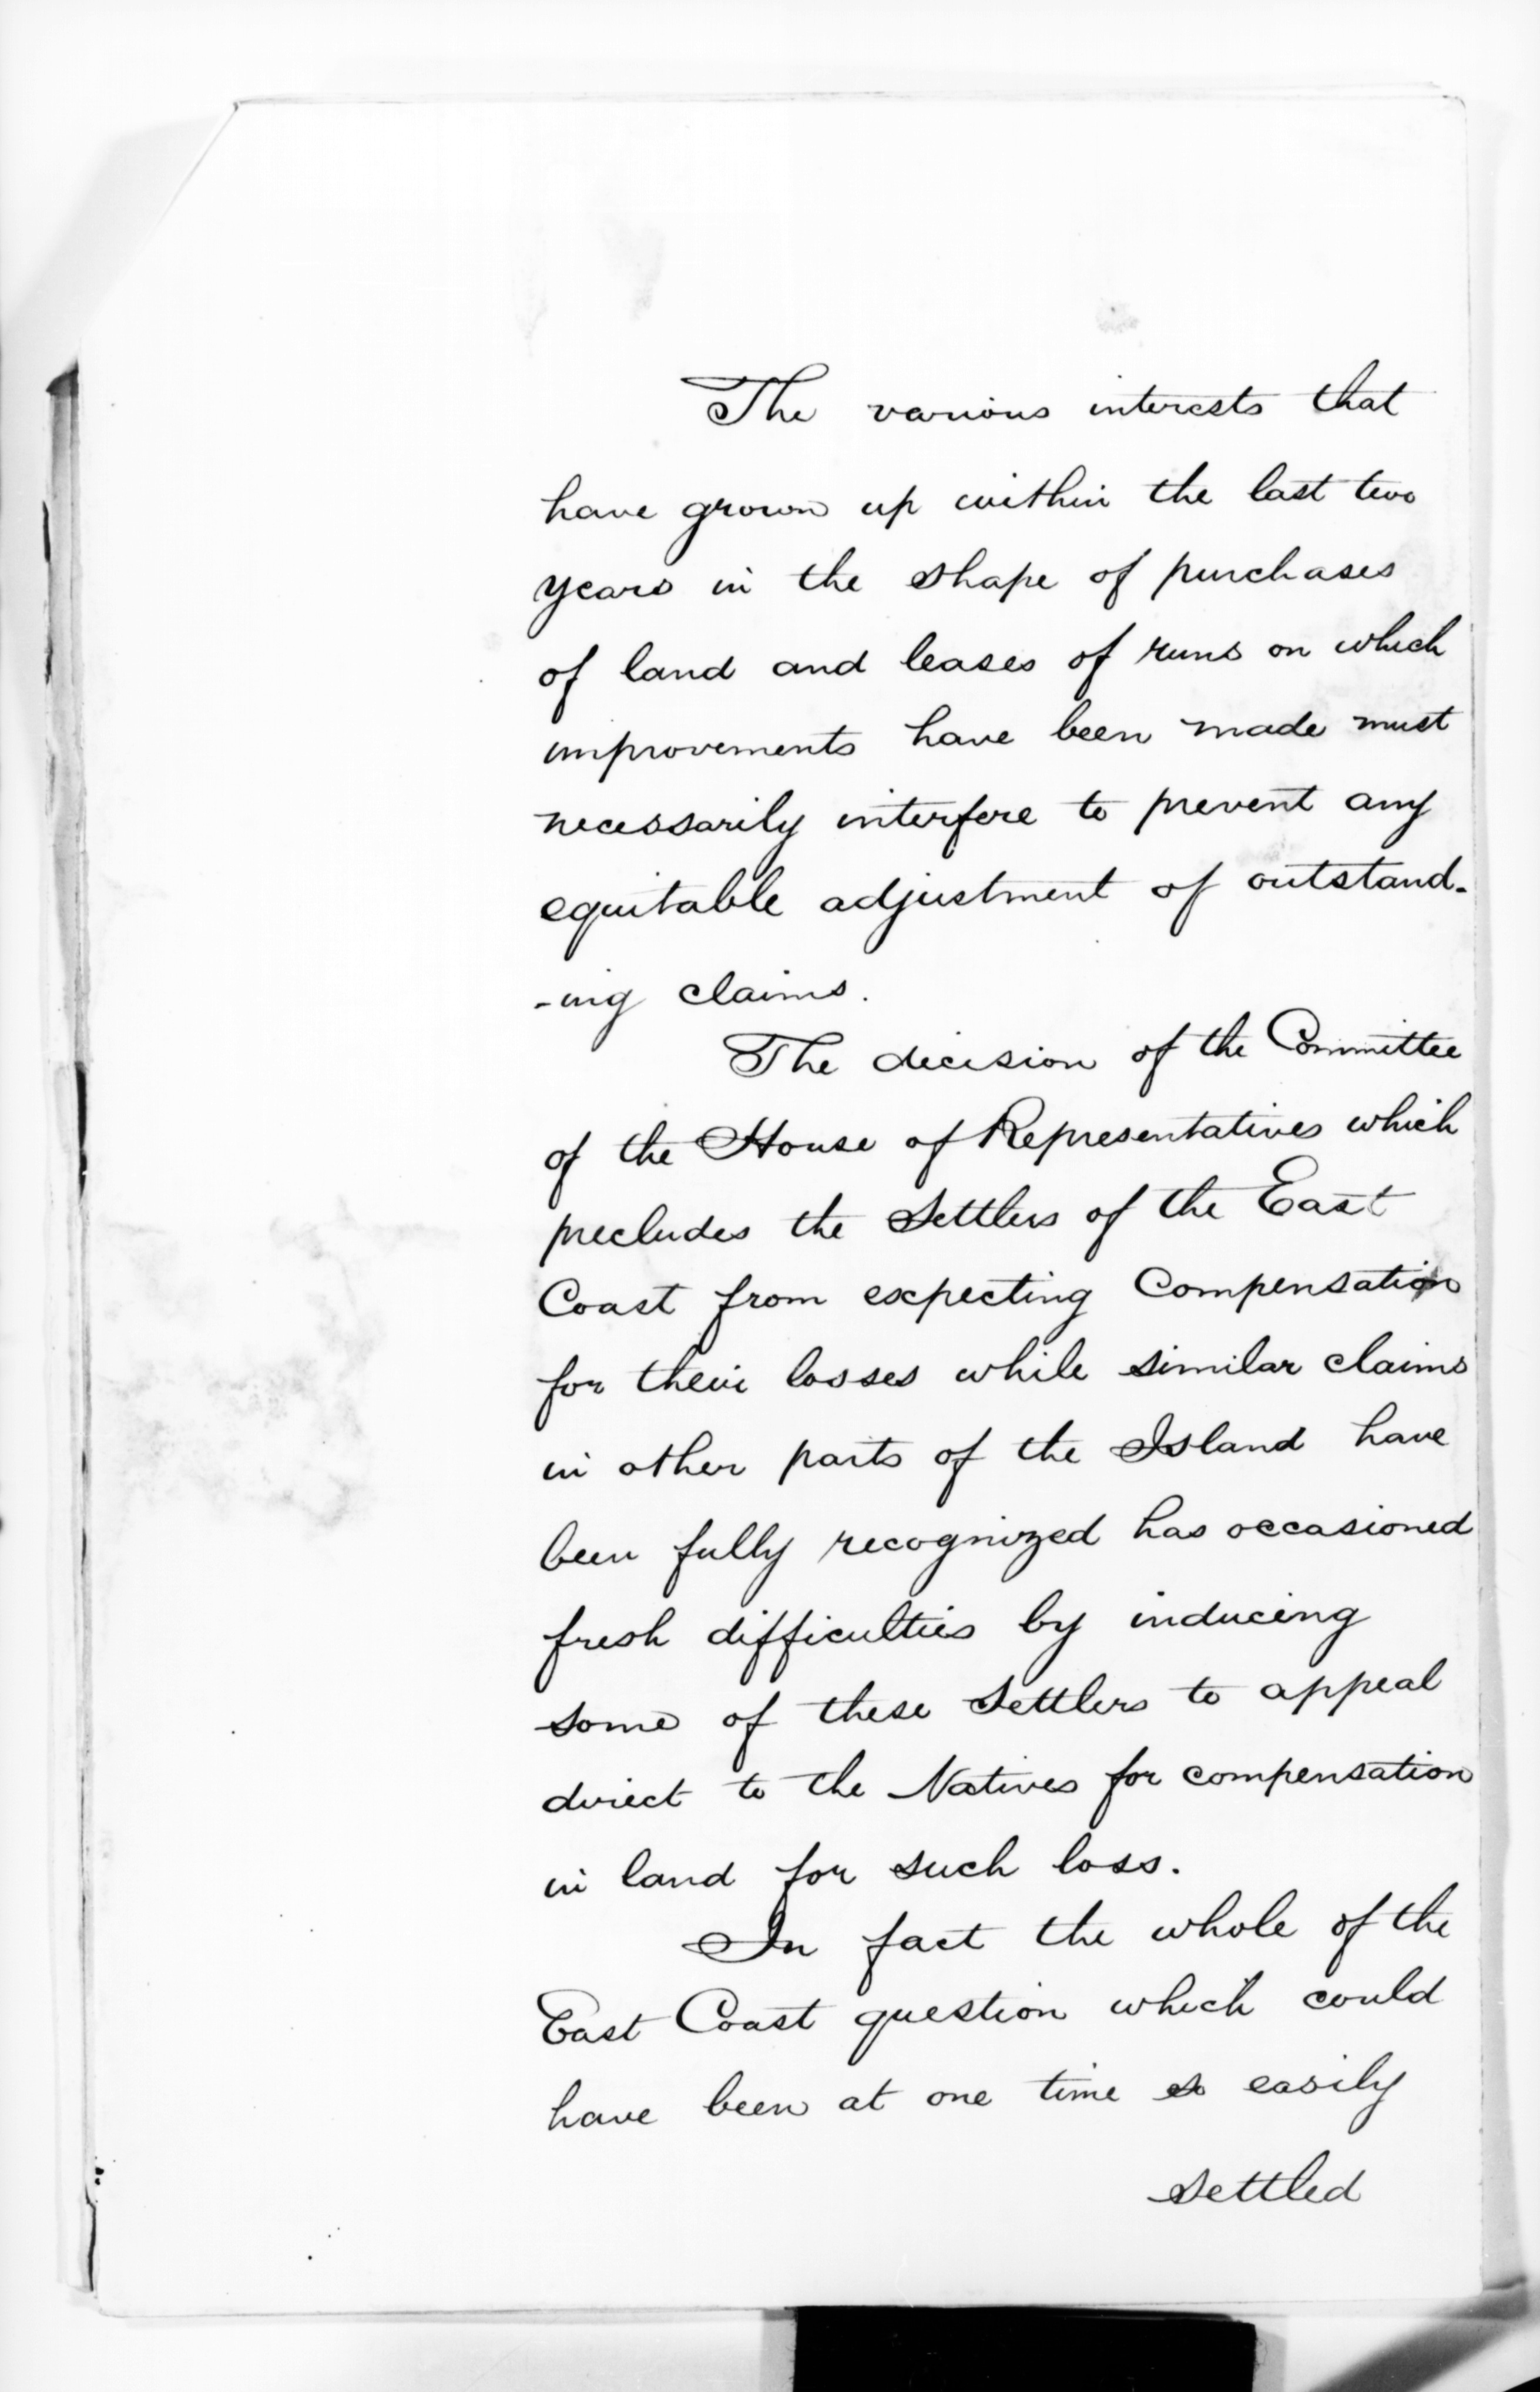 The various interests that
have grown up within the last two
years in the shape of purchases
of land and leases of runs on which
improvements have been made must
necessarily interfere to prevent any
equitable adjustment of outstand-
-ing claims.
The decision of the Committee
of the House of Representatives which
precludes the Settlers of the East
Coast from expecting Compensation
for their losses while similar claims
in other parts of the Island have
been fully recognized has occasioned
fresh difficulties by inducing
some of these Settlers to appeal
direct to the Natives for compensation
in land for such loss.
In fact the whole of the
East Coast question which could
have been at one time so easily
settled